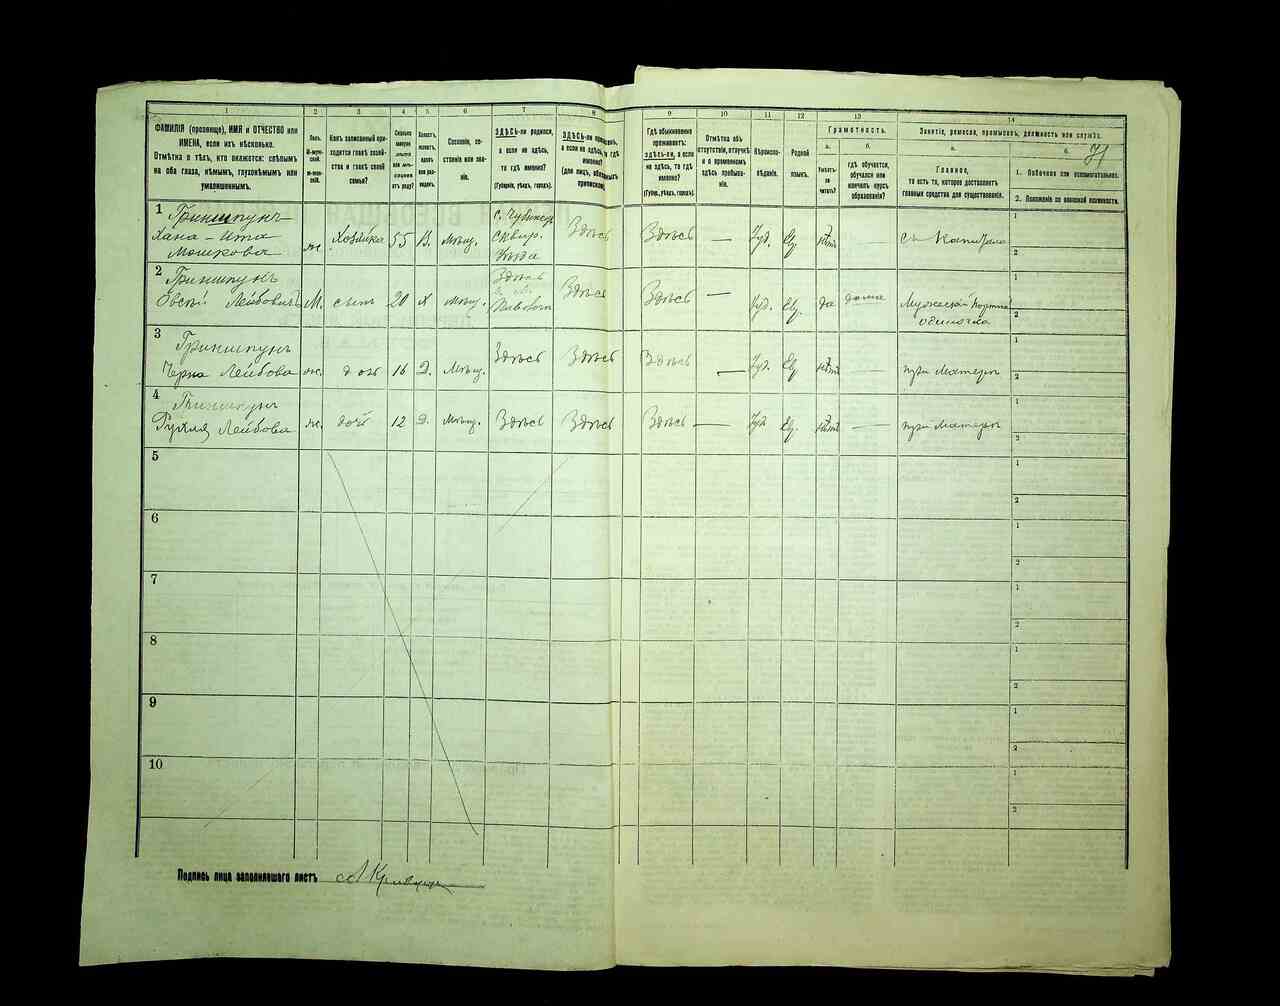 1 2 3 4 5 6 7 8 9 10 11 12 13 14
ФАМИЛІЯ (прозвище), ИМЯ и ОТЧЕСТВО или
ИМЕНА, если ихъ нѣсколько.
Отмѣтка о тѣхъ, кто окажется: слѣпымъ
на оба глаза, нѣмымъ, глухонѣмымъ или
умалишеннымъ.
Полъ.
М-мужской.
Ж-женскій.
Какъ записанный приходится
главѣ хозяйства
и главѣ своей
семьи?
Сколько
минуло
лѣтъ
или мѣсяцевъ
отъ роду?
Холостъ,
женатъ,
вдовъ
или разведенъ.
Сословіе, состояніе
или званіе.
ЗДѢСЬ-ли родился,
а если не здѣсь,
то гдѣ именно?
(Губернія, уѣздъ, городъ).
ЗДѢСЬ-ли
а если не здѣсь, то гдѣ
именно?
(для лицъ,
Гдѣ обыкновенно
проживаетъ:
ЗДѢСЬ-ли, а если
не здѣсь, то гдѣ
именно?
(Губ., уѣздъ, городъ).
Отмѣтка объ
отсутствіи, отлучкѣ
и о временномъ
здѣсь пребываніи.
Вѣроисповѣданіе.
Родной
языкъ.
Грамотность.
а.
Умѣетъ-ли
читать?
б.
гдѣ обучается,
обучался или
кончилъ курсъ
образованія?
Занятіе, ремесло, промыселъ, должность или служба.
а.
Главное,
то есть то, которое доставляетъ
главныя средства для существованія.
б.
71
1. Побочное или вспомогательное.
2. Положеніе по воинской повинности.
1 Гриншпунъ
Хана - Ита
Мошкова
ж.
Хозяйка
55
В.
Мѣщ.
Сквир.
уѣзда
Здѣсь
Здѣсь
—
Іуд.
Ев.
нѣтъ
съ Капитала
2 Гриншпунъ
Овсѣй Лейбовичъ
М.
сынъ
20
Х
мѣщ.
Здѣсь
Здѣсь
Здѣсь
—
Іуд.
Ев.
да
дома
Мужеской портной
одиночка
3 Гриншпунъ
Черна Лейбова
ж.
доч
16
Д.
Мѣщ.
Здѣсь
Здѣсь
Здѣсь
—
Іуд.
Ев
нѣтъ
при матери
4 Гриншпунъ
Рухля Лейбова
ж.
доч
12
Д.
Мѣщ.
Здѣсь
Здѣсь
Здѣсь
—
Іуд
Ев.
нѣтъ
—
при матери
5
6
7
8
9
10
Подпись лица заполнявшаго листъ